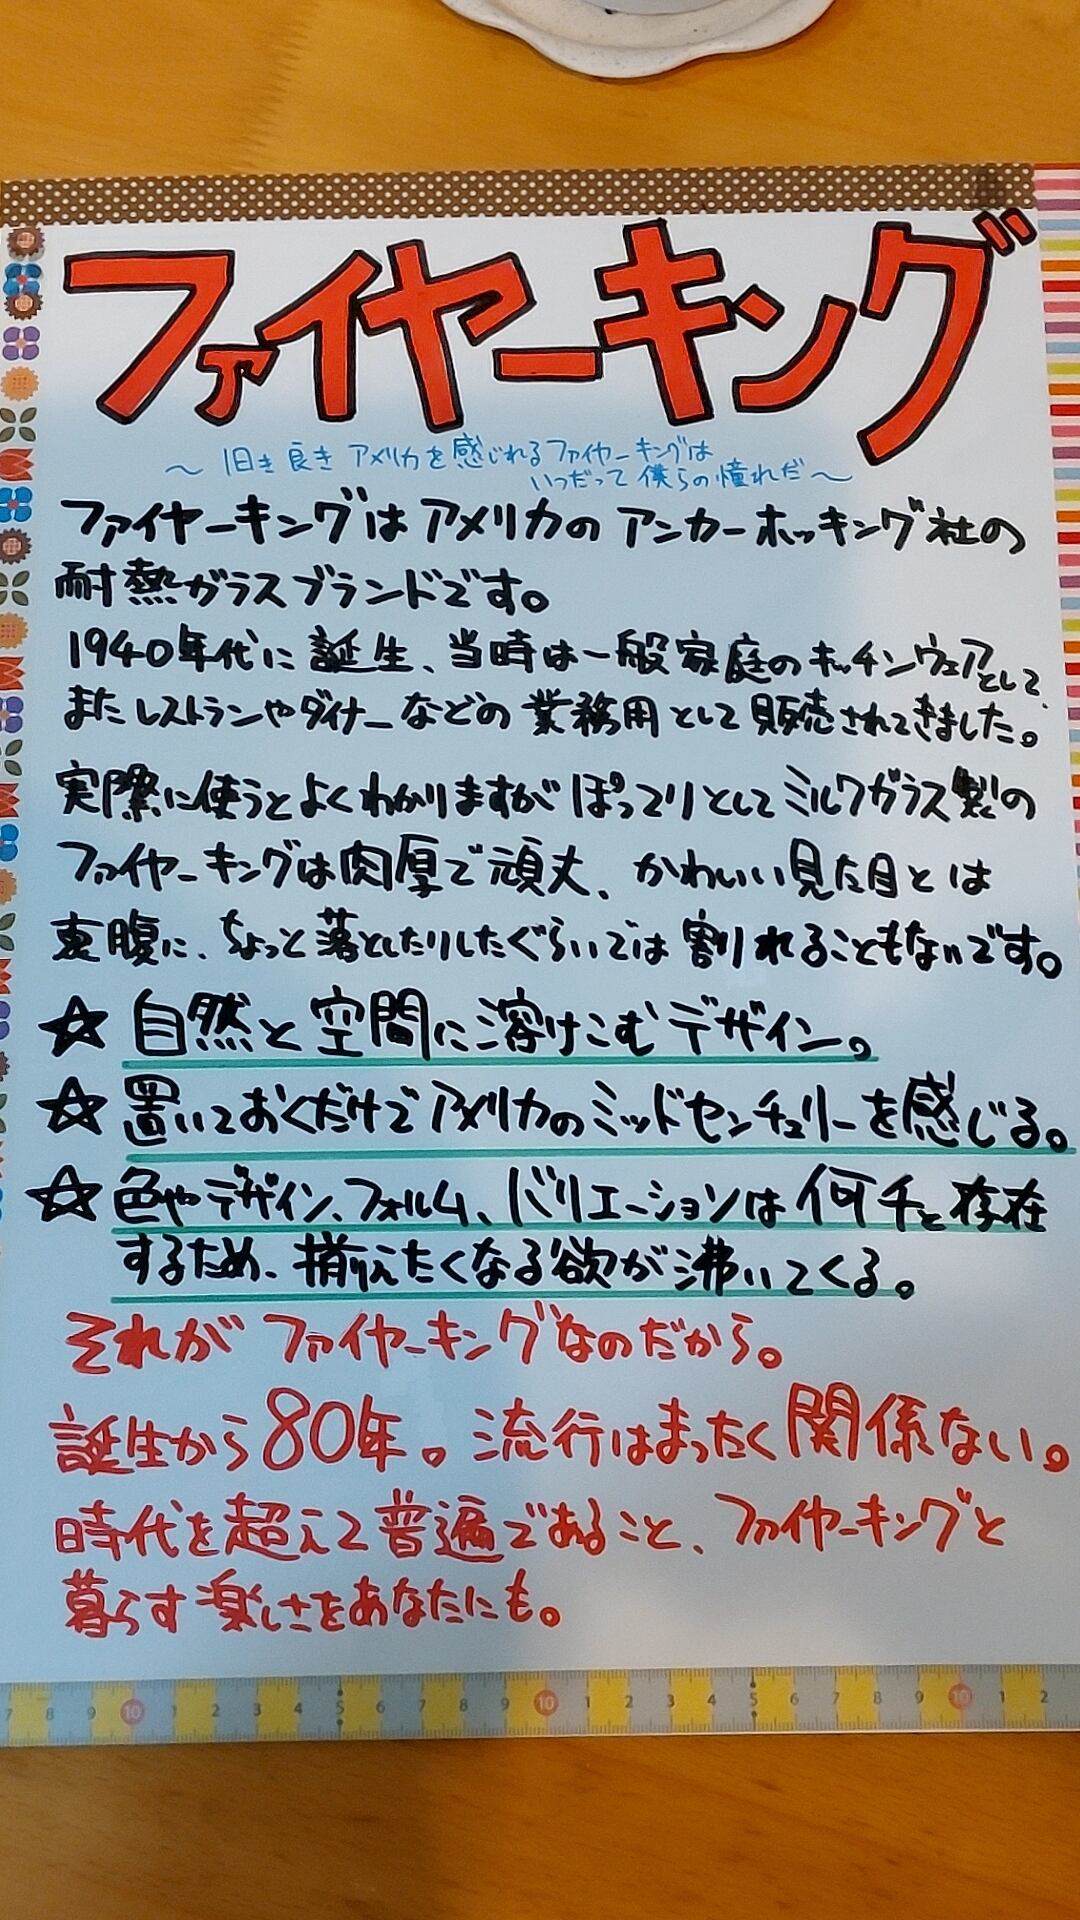 ファイヤーキング
～旧き良きアメリカを感じれるファイヤーキングは
いつだって僕らの憧れだ～
ファイヤーキングはアメリカのアンカーホッキング社の
耐熱ガラスブランドです。
1940年代に誕生、当時は一般家庭のキッチンウェアとして、
またレストランやダイナーなどの業務用として販売されてきました。
実際に使うとよくわかりますがぽってりとしてミルクガラス製の
ファイヤーキングは肉厚で頑丈、かわいい見た目とは
裏腹に、ちょっと落としたりしたぐらいでは割りれることもないです。
☆自然と空間に溶けこむデザイン。
☆置いておくだけでアメリカのミッドセンチュリーを感じる。
☆色やデザイン、フォルム、バリエーションは何千と存在
するため、揃えたくなる欲が沸いてくる。
それがファイヤーキングなのだから。
誕生から80年。流行はまったく関係ない。
時代を超えて普遍であること、ファイヤーキングと
暮らす楽しさをあなたにも。
7 8 9 10 1 2 3 4 5 6 7 8 9 10 1 2 3 4 5 6 7 8 9 10 1 2